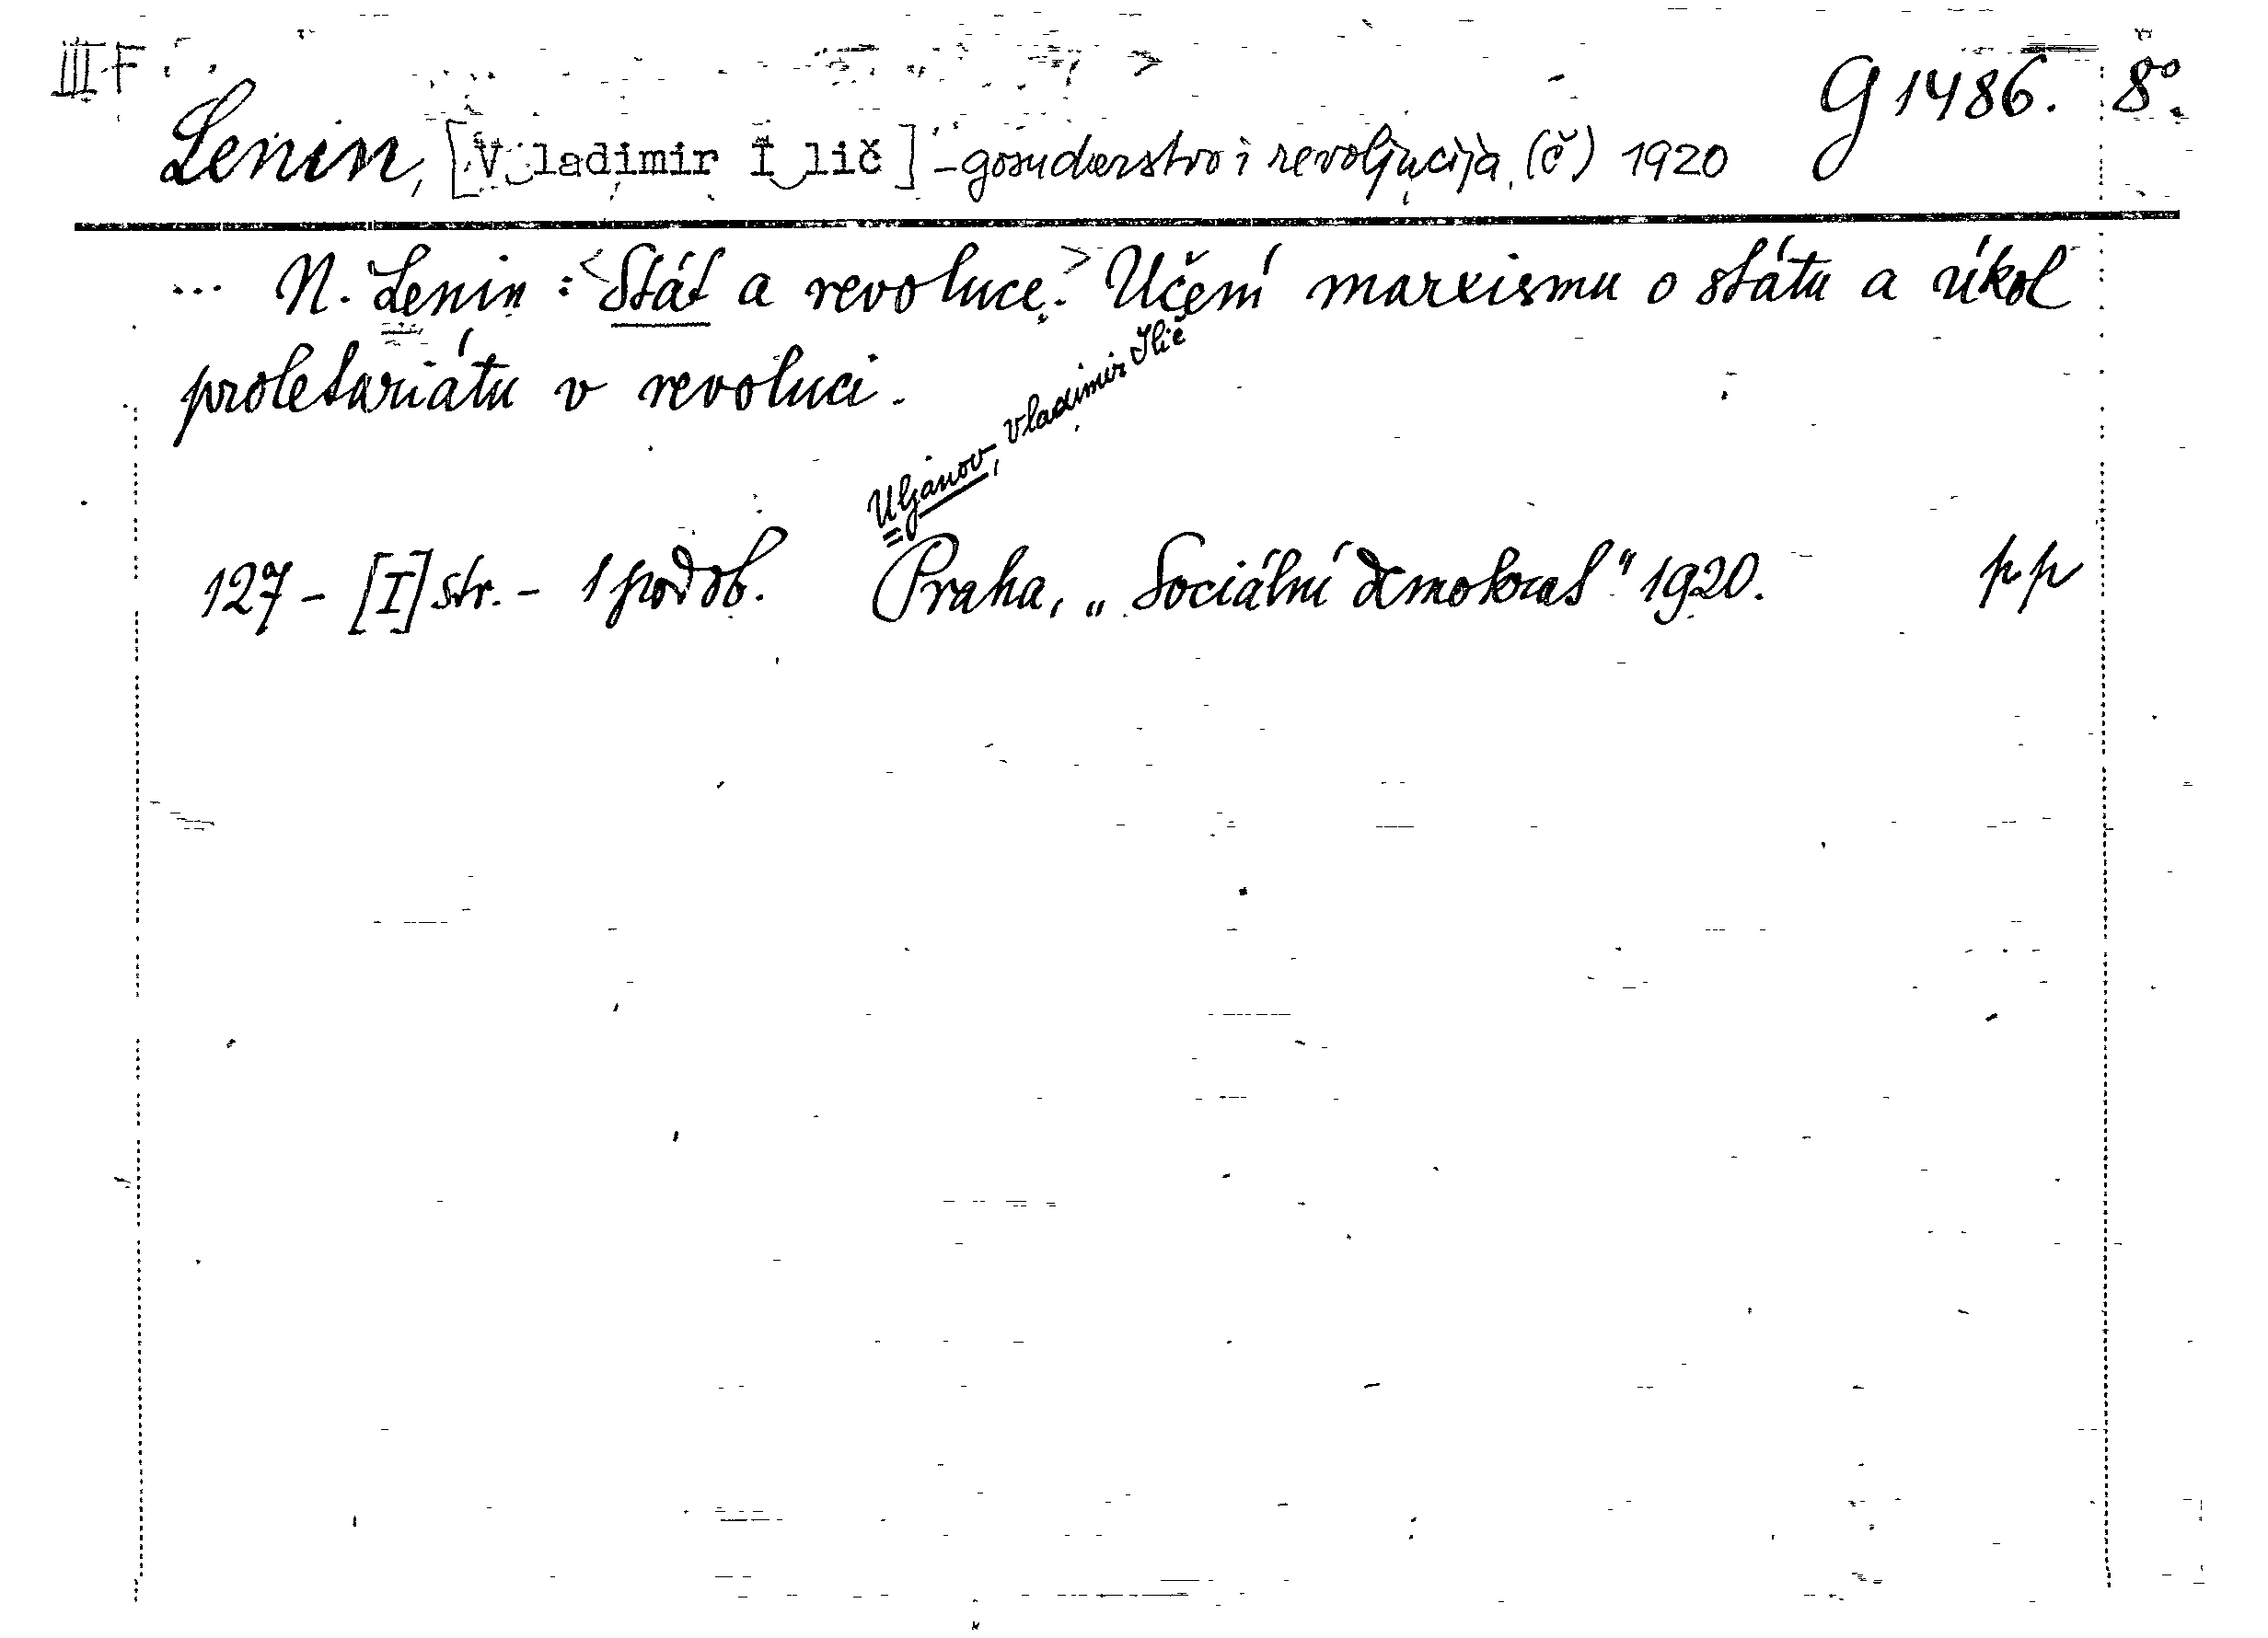 III F
G 1486. 8°.
Lenin, [Vladimir Ilič] - gosudarstvo i revoljucija (č) 1920
... N. Lenin: <Stát a revoluce.> Učení marxismu o státu a úkol
proletariátu v revoluci.
= Uljanov, Vladimir Ilič
127 - [I] str. - 1 podob. Praha, „Sociální demokrat" 1920. pp